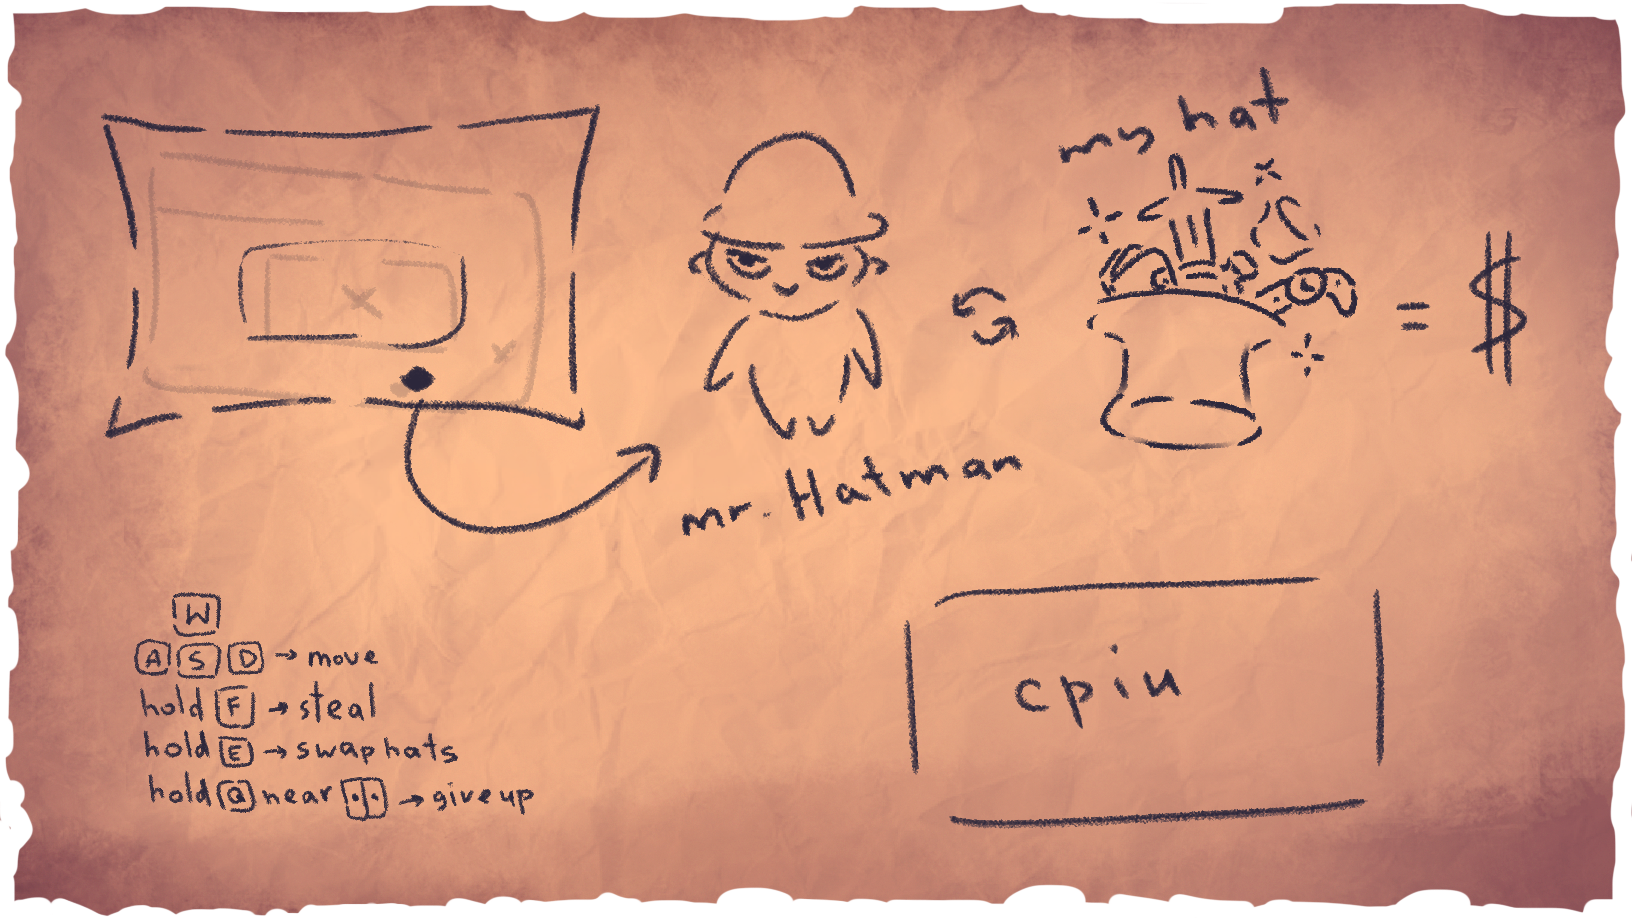 my hat
= $
mr. Hatman
W
A S D → move
hold F → steal
hold E → swap hats
hold Q near → give up
cpiu